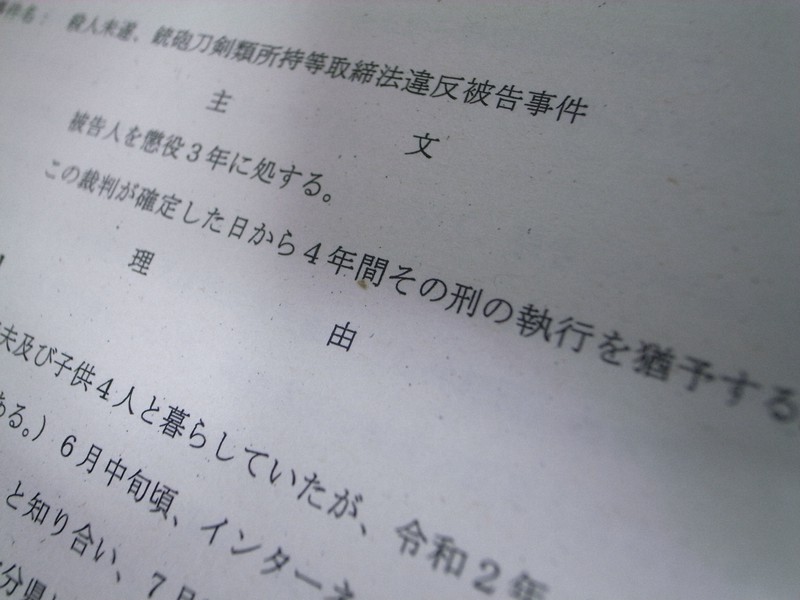 事件名： 殺人未遂、銃砲刀剣類所持等取締法違反被告事件
主 文
被告人を懲役３年に処する。
この裁判が確定した日から４年間その刑の執行を猶予する
理 由
夫及び子供４人と暮らしていたが、令和２年
ある。）６月中旬頃、インターネ
と知り合い、７月
分県